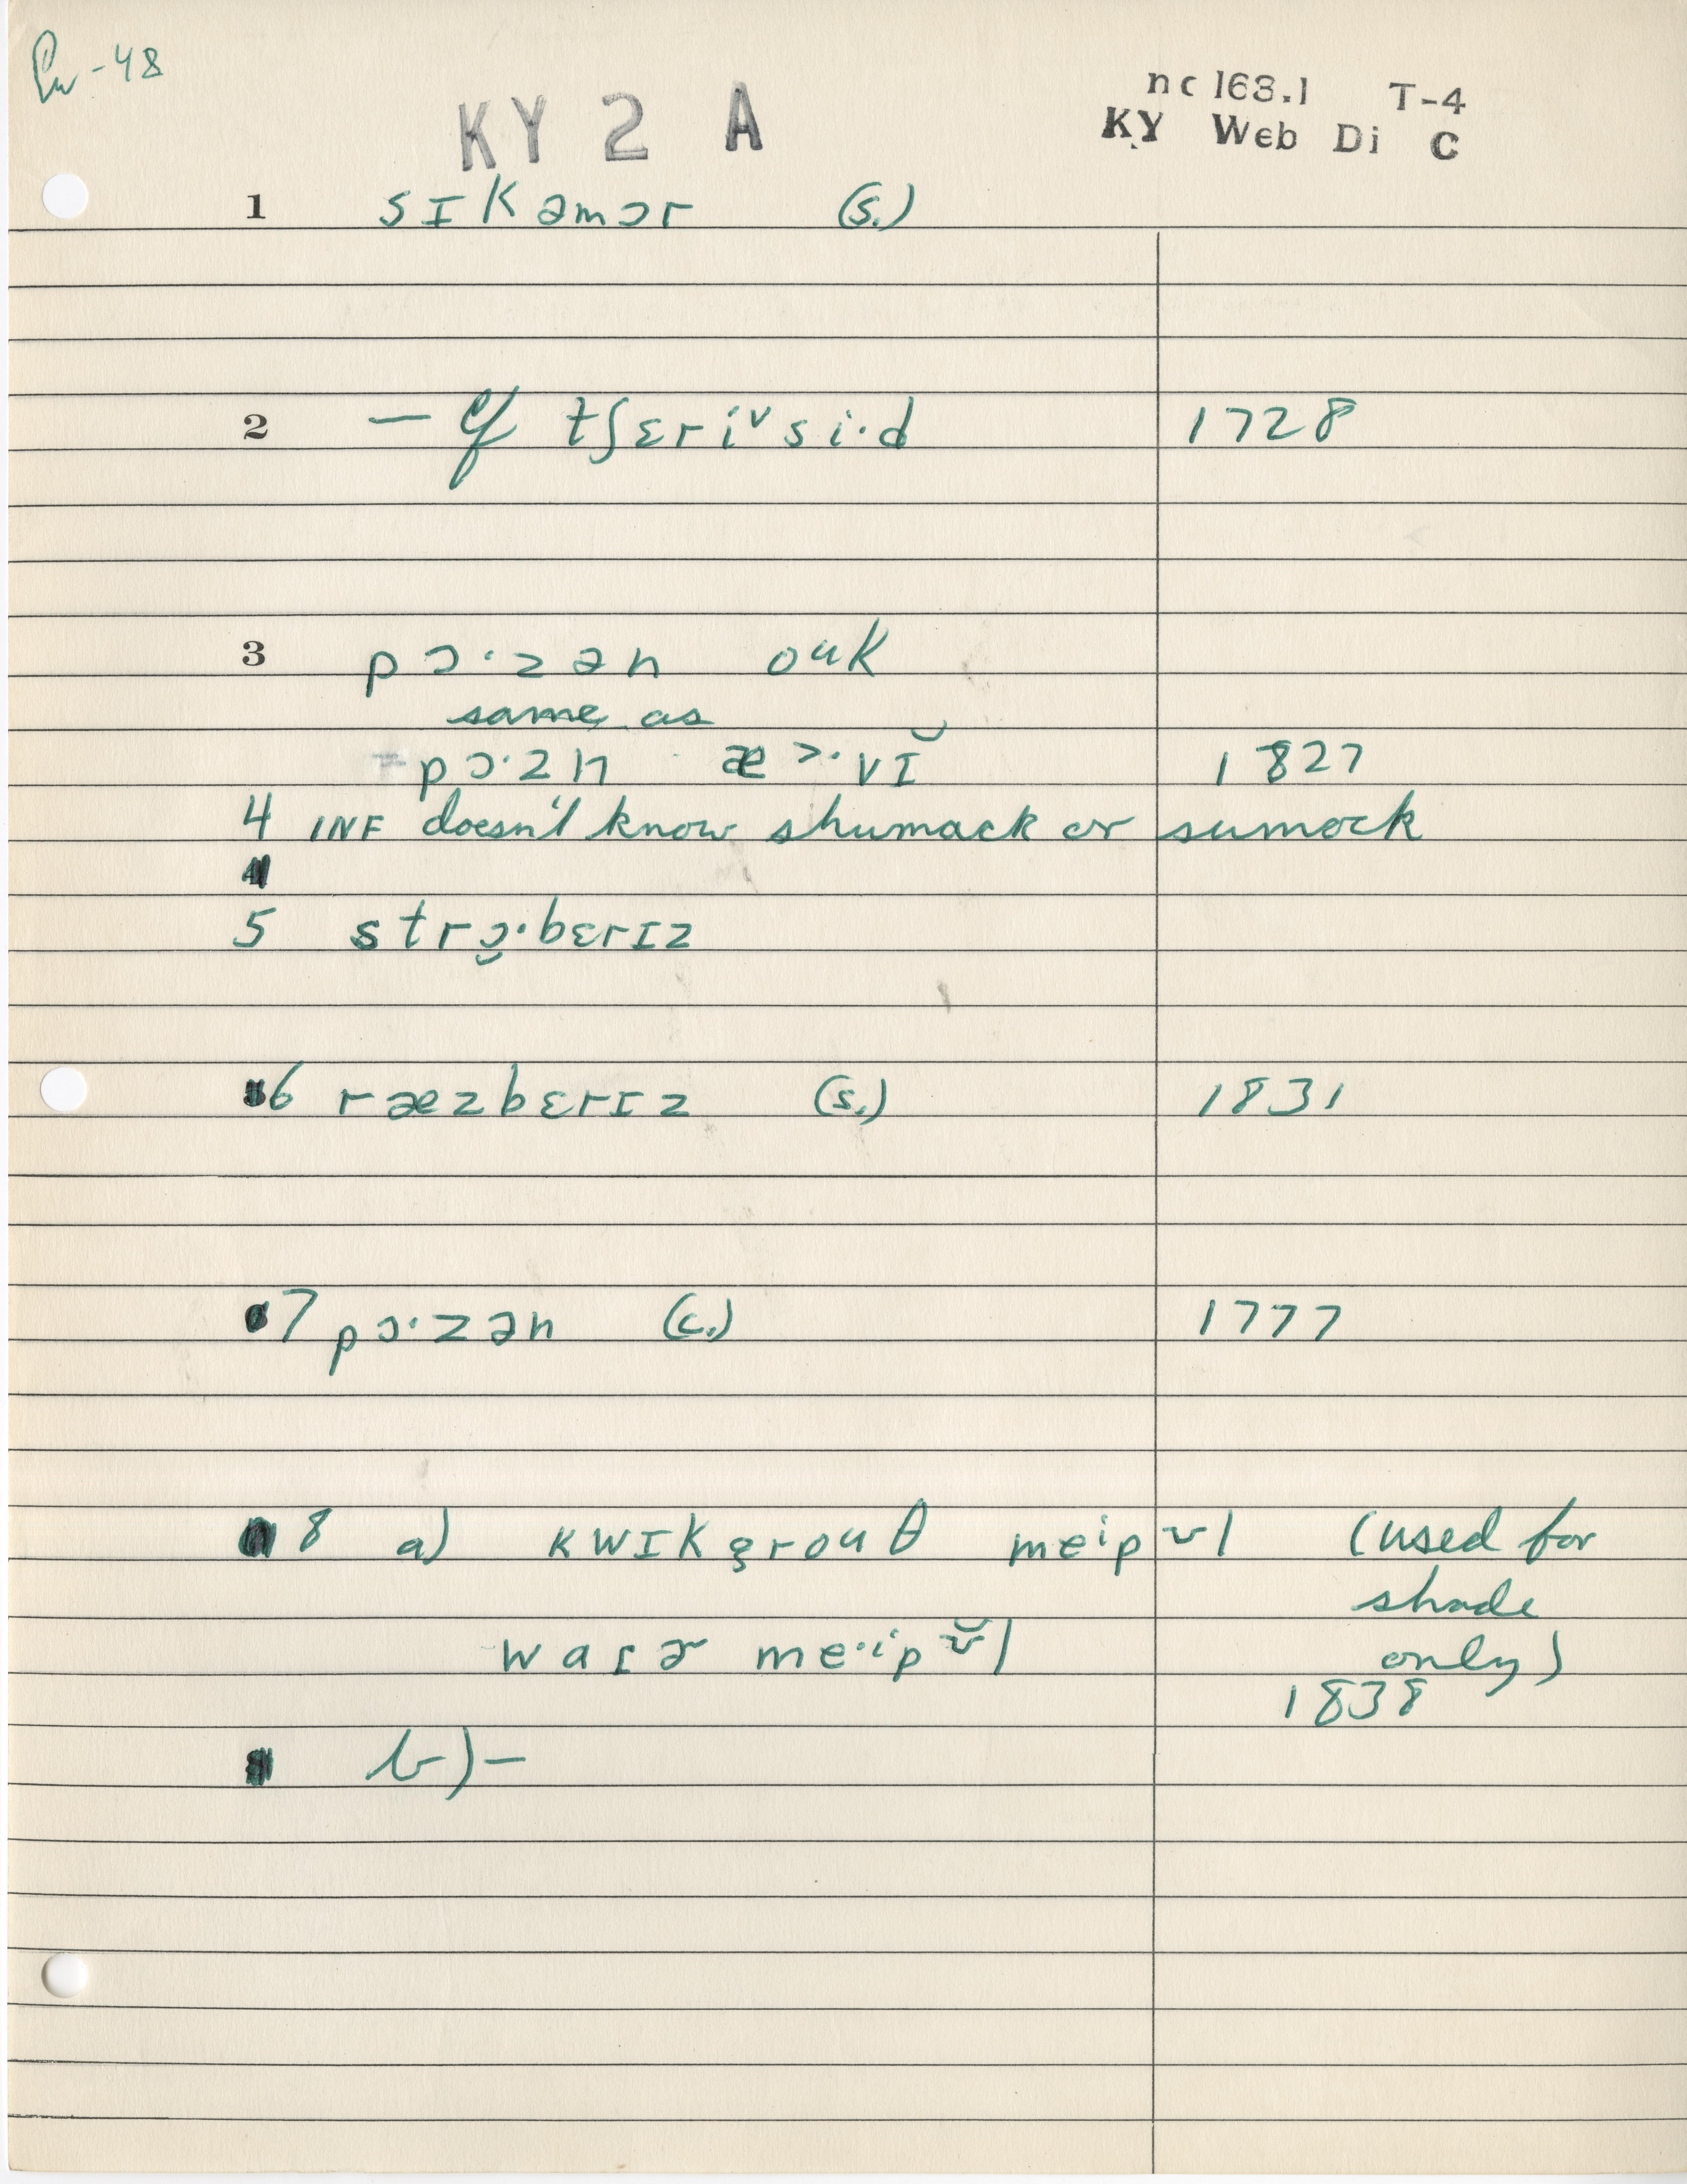 Pw-48
KY 2 A
nc 163.1 T-4
KY Web Di C
1 sɪkəmɔr (s.)
2 — cf tʃɛriᵛsi·d 1728
3 pɔ·zən ouk
same as
pɔ·zn æ>·vɪ̆ 1827
4 INF doesn't know shumack or sumock
5 strɔ̬·bɛrɪz
6 ræzbɛrɪz (s.) 1831
7 pɔ·zən (c.) 1777
8 a) kwɪkgrouθ meⁱpʊl (used for
shade
waɪɚ me·ⁱpʊ̆l only)
1838
b) —